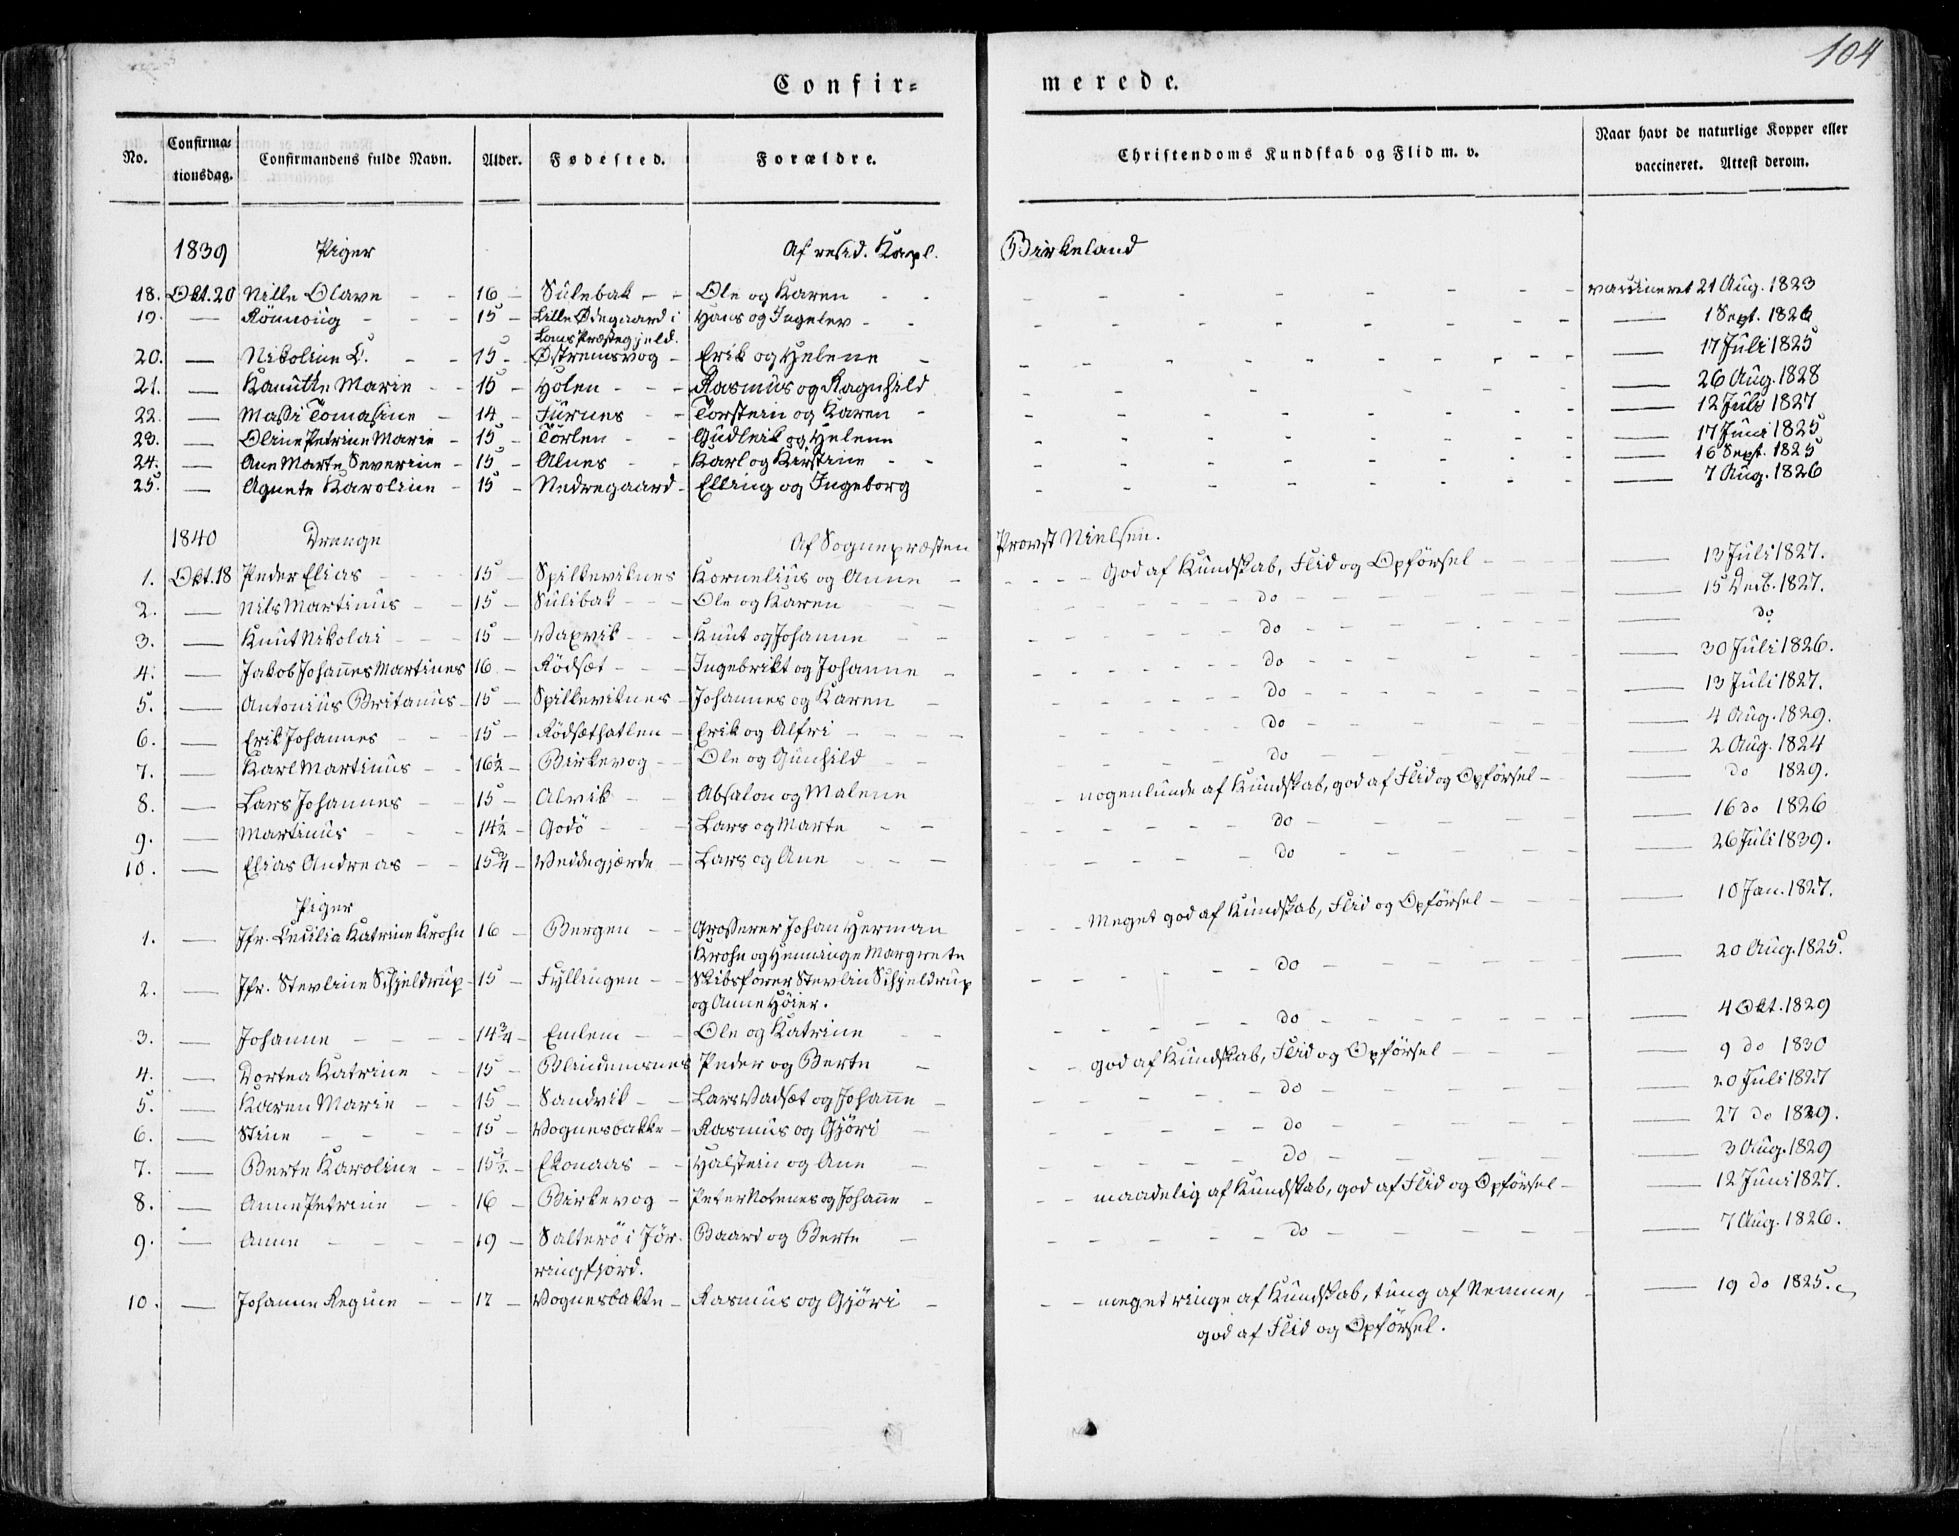 104
Confir= merede.
No. Confirma-tionsdag. Confirmandens fulde Navn. Alder. Fødested. Forældre. Christendoms Kundskab og Flid m. v. Naar havt de naturlige Kopper eller vaccineret. Attest derom.
1839 Piger Af resid. Kapl. Birkeland
18. Okt. 20 Nille Olave - - 16 - Sulebak - - Ole og Karen - - vaccineret 21 Aug. 1823
19. — Rönnoug - - - 15 - Lille Ödegaard i Hans og Ingelev - - — 1 Sept. 1826
Loms Præstegjeld.
20. — Nikoline L. - - 15 - Östremsvog - Erik og Helene - — 17 Juli 1825
21. — Kanutte Marie - - 15 - Holen - - - Rasmus og Ragnhild — 26 Aug. 1828
22. — Massi Tomasine - 14 - Furnes - - Torstein og Karen - — 12 Juli 1827
23. — Oline Petrine Marie - 15 - Törlen - - Gudleik og Helene — 17 Juni 1825
24. — Ane Marte Severine - 15 - Alnes - - Karl og Kirstine - - — 16 Sept. 1825
25. — Agnete Karoline - 15 - Nedregaard - Elling og Ingeborg — 7 Aug. 1826
1840 Drenge Af Sognepræsten Provst Nielsen.
1. Okt. 18 Peder Elias - - - 15 - Spilkeviknes Kornelius og Anne - God af Kundskab, Flid og Opförsel - - — 13 Juli 1827.
2. — Nils Martinus - - 15 - Sulibak - - - Ole og Karen - - - do — 15 Decb. 1827.
3. — Knut Nikolai - - - 15 - Vaxvik - - - Knut og Johanne - - do — do
4. — Jakob Johannes Martines 16 - Rödsæt - - - Ingebrikt og Johanne - do — 30 Juli 1826.
5. — Antonius Britanus - 15 - Spilkeviknes - Johannes og Karen - do — 13 Juli 1827.
6. — Erik Johannes - - 15 - Rödsæthatlen - Erik og Alfri - - - do — 4 Aug. 1829.
7. — Karl Martinus - - 16½ - Birkevog - - Ole og Gunhild - - do — 2 Aug. 1824
8. — Lars Johannes - - 15 - Alvik - - Absalon og Malene - nogenlunde af Kundskab, god af Flid og Opförsel - — do 1829.
9. — Martinus - - - 14½ - Godö - - - Lars og Marte - - do — 16 do 1826
10. — Elias Andreas - - 15¾ - Veddegjærde - Lars og Ane - - - do — 26 Juli 1839.
Piger
1. — Jfr. Cecilia Katrine Krohn 16 - Bergen - - Grosserer Johan Herman - - - Meget god af Kundskab, Flid og Opförsel - - — 10 Jan. 1827.
Krohn og Henninge Margrete
2. — Jfr. Stevline Schjeldrup - 15 - Fyllingen - - Skibsförer Stevlin Schjeldrup do — 20 Aug. 1825.
og Anne Höier.
3. — Johanne - - - - 14¾ - Emlem - - Ole og Katrine - - do — 4 Okt. 1829
4. — Dortea Katrine - - 15 - Blindemsnes Peder og Berte - - - god af Kundskab, Flid og Opförsel - - — 9 do 1830
5. — Karen Marie - - 15 - Sandvik - - Lars Vadsæt og Johanne - do — 20 Juli 1827
6. — Stine - - - - 15 - Vognesbakke - Rasmus og Gjöri - do — 27 do 1829.
7. — Berte Karoline - - 15½ - Ekonaas - - Halstein og Ane - do — 3 Aug. 1829
8. — Anne Petrine - - 16 - Birkevog - Peter Notenes og Johanne - - - maadelig af Kundskab, god af Flid og Opförsel - — 12 Juni 1827.
9. — Anne - - - - 19 - Salterö i Jör- Baard og Berte - do — 7 Aug. 1826.
ringfjord.
10. — Johanne Regine - - 17 - Vognesbakke - Rasmus og Gjöri - - - meget ringe af Kundskab, tung af Nemme, — 19 do 1825.
god af Flid og Opförsel.